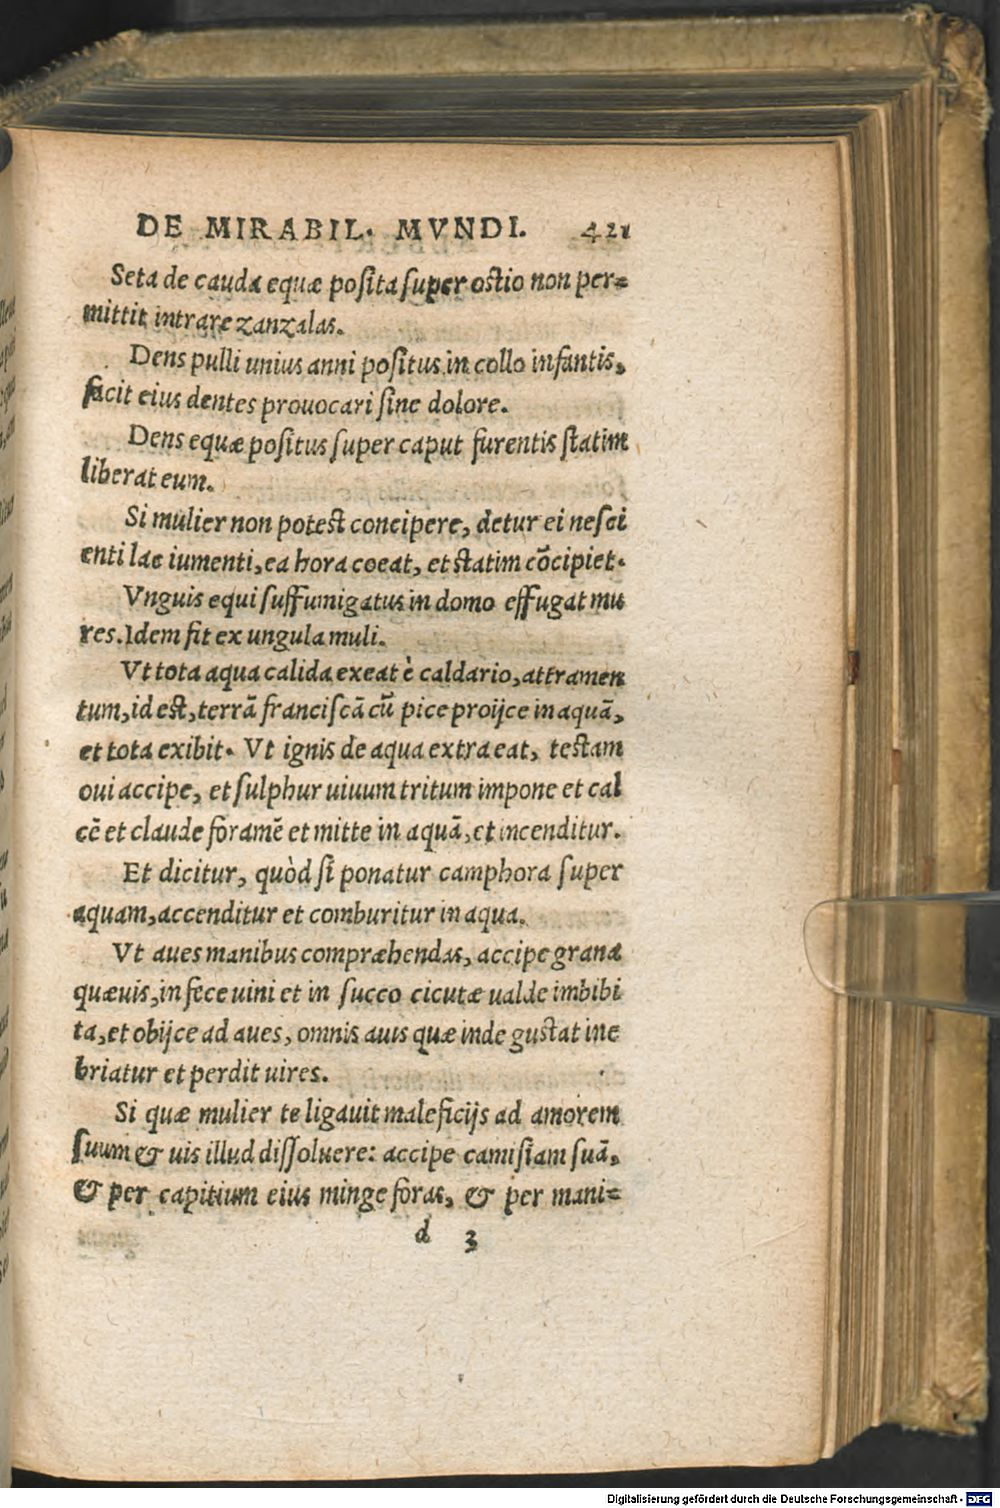 DE MIRABIL. MVNDI. 421
Seta de cauda equæ posita super ostio non per=
mittit intrare zanzalas.
Dens pulli unius anni positus in collo infantis,
facit eius dentes prouocari sine dolore.
Dens equæ positus super caput furentis statim
liberat eum.
Si mulier non potest concipere, detur ei nesci
enti lac iumenti, ea hora coeat, et statim cōcipiet.
Vnguis equi suffumigatus in domo effugat mu
res. Idem fit ex ungula muli.
Vt tota aqua calida exeat è caldario, attramen
tum, id est, terrā franciscā cū pice proijce in aquā,
et tota exibit. Vt ignis de aqua extra eat, testam
oui accipe, et sulphur uiuum tritum impone et cal
cē et claude foramē et mitte in aquā, et incenditur.
Et dicitur, quòd si ponatur camphora super
aquam, accenditur et comburitur in aqua.
Vt aues manibus compræhendas, accipe grana
quæuis, in fece uini et in succo cicutæ ualde imbibi
ta, et obijce ad aues, omnis auis quæ inde gustat ine
briatur et perdit uires.
Si quæ mulier te ligauit maleficijs ad amorem
suum & uis illud dissoluere: accipe camisiam suā,
& per capitium eius minge foras, & per mani=
d 3
Digitalisierung gefördert durch die Deutsche Forschungsgemeinschaft - DFG